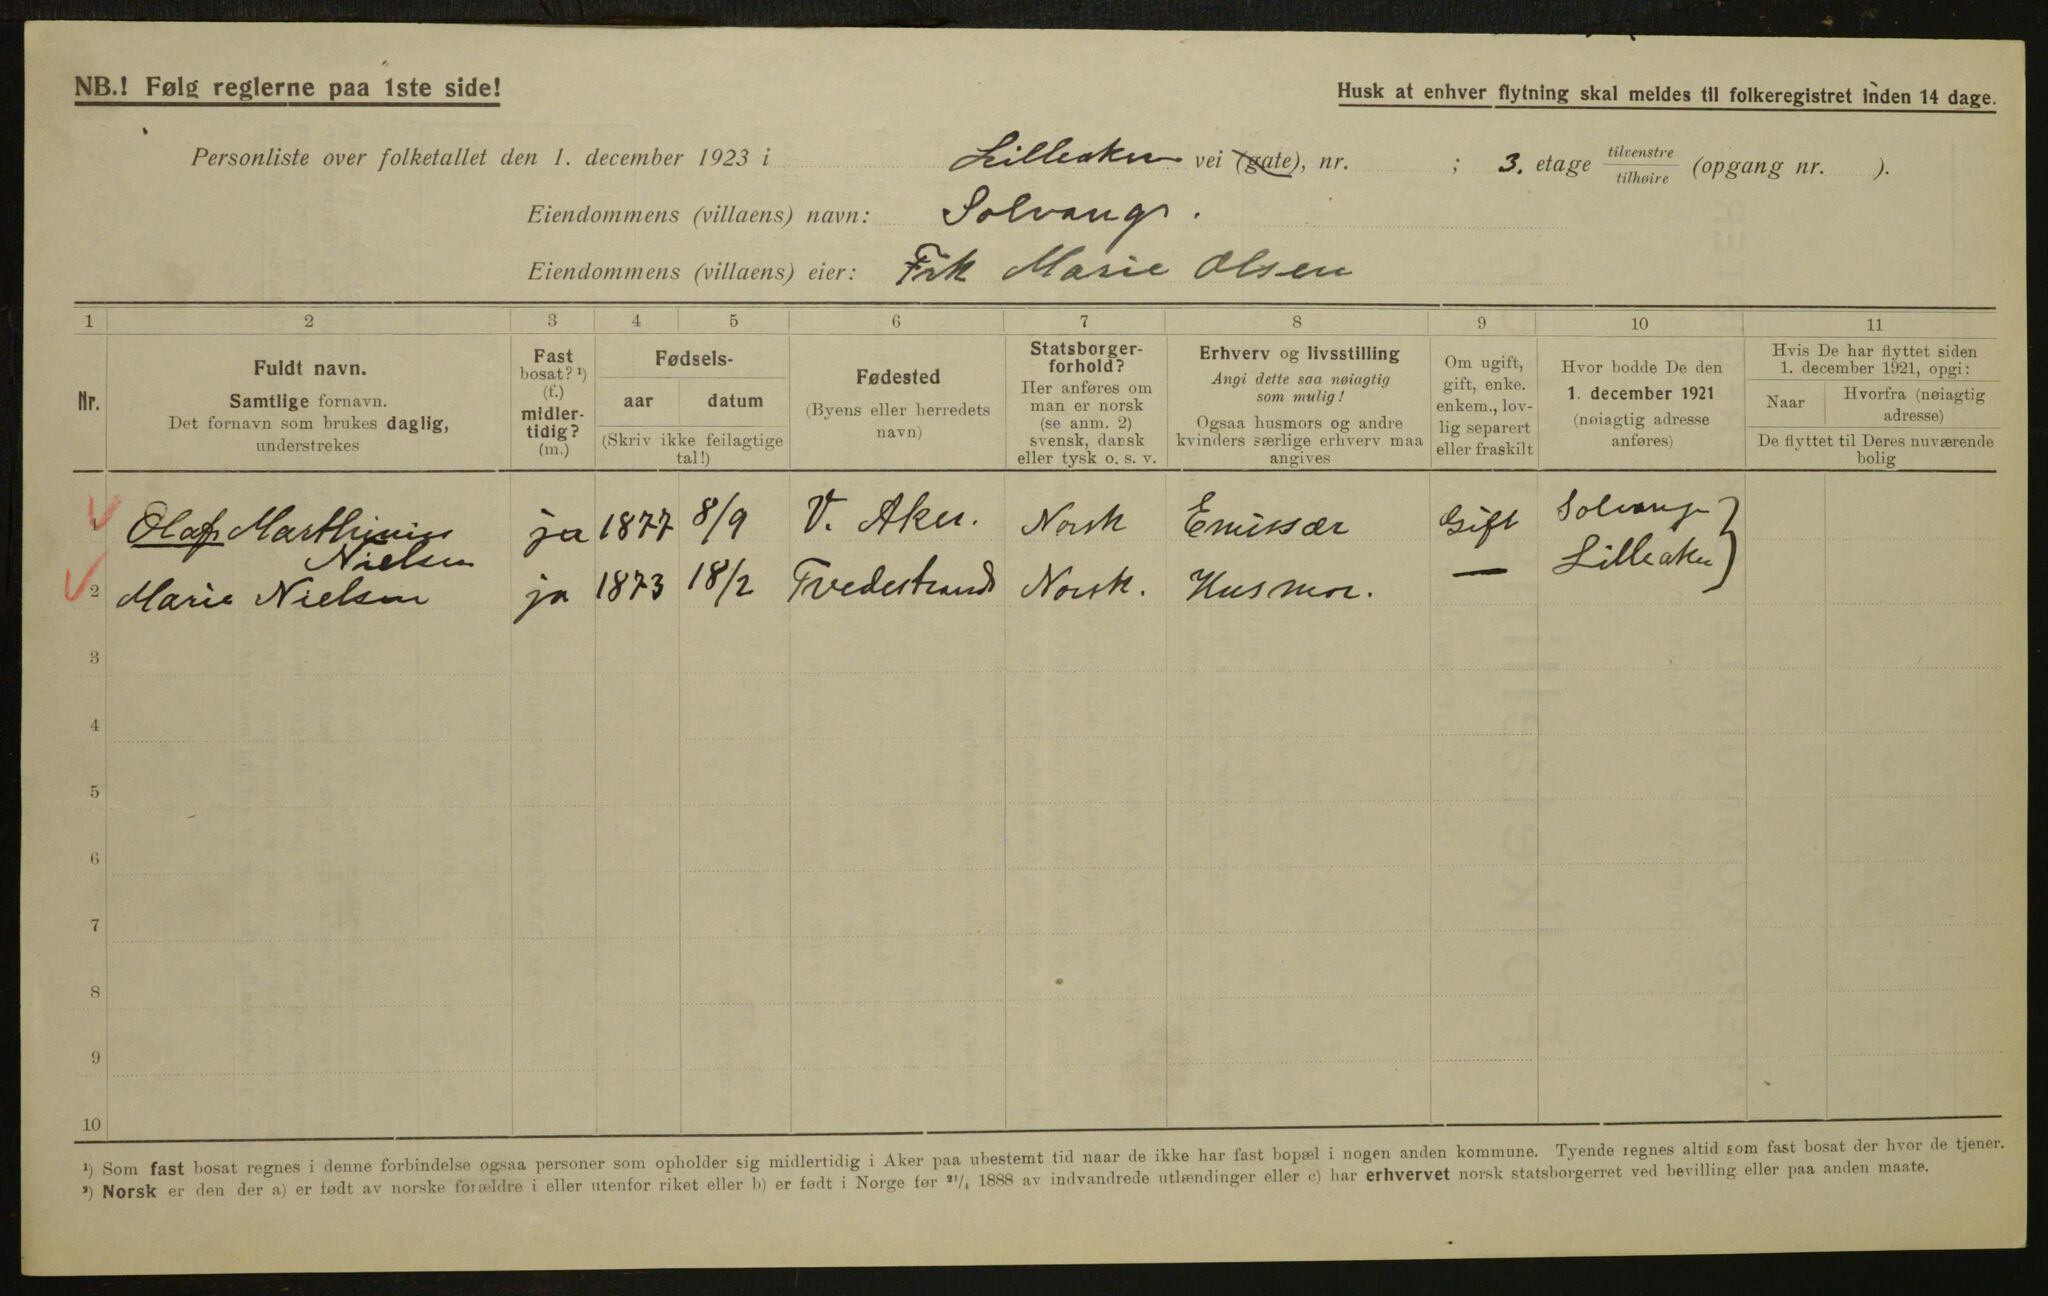 NB.! Følg reglerne paa 1ste side!
Husk at enhver flytning skal meldes til folkeregistret inden 14 dage.
Personliste over folketallet den 1. december 1923 i Lilleaker vei (gate), nr. ; 3. etage tilvenstre/tilhøire (opgang nr. ).
Eiendommens (villaens) navn: Solvang.
Eiendommens (villaens) eier: Frk Marie Olsen
1 2 3 4 5 6 7 8 9 10 11
Nr.
Fuldt navn.
Samtlige fornavn.
Det fornavn som brukes daglig,
understrekes
Fast
bosat? ¹)
(f.)
midler-
tidig?
(m.)
Fødsels-
aar datum
(Skriv ikke feilagtige
tal!)
Fødested
(Byens eller herredets
navn)
Statsborger-
forhold?
Her anføres om
man er norsk
(se anm. 2)
svensk, dansk
eller tysk o. s. v.
Erhverv og livsstilling
Angi dette saa nøiagtig
som mulig!
Ogsaa husmors og andre
kvinders særlige erhverv maa
angives
Om ugift,
gift, enke.
enkem., lov-
lig separert
eller fraskilt
Hvor bodde De den
1. december 1921
(nøiagtig adresse
anføres)
Hvis De har flyttet siden
1. december 1921, opgi:
Naar Hvorfra (nøiagtig
adresse)
De flyttet til Deres nuværende
bolig
1 Olaf Marthinius Nielsen ja 1877 8/9 V. Aker. Norsk Emissær Gift Solvang
Lilleaker
2 Marie Nielsen ja 1873 18/2 Tvedestrand Norsk. Husmor. —
3
4
5
6
7
8
9
10
¹) Som fast bosat regnes i denne forbindelse ogsaa personer som opholder sig midlertidig i Aker paa ubestemt tid naar de ikke har fast bopæl i nogen anden kommune. Tyende regnes altid som fast bosat der hvor de tjener.
²) Norsk er den der a) er født av norske forældre i eller utenfor riket eller b) er født i Norge før ²¹/₄ 1888 av indvandrede utlændinger eller c) har erhvervet norsk statsborgerret ved bevilling eller paa anden maate.